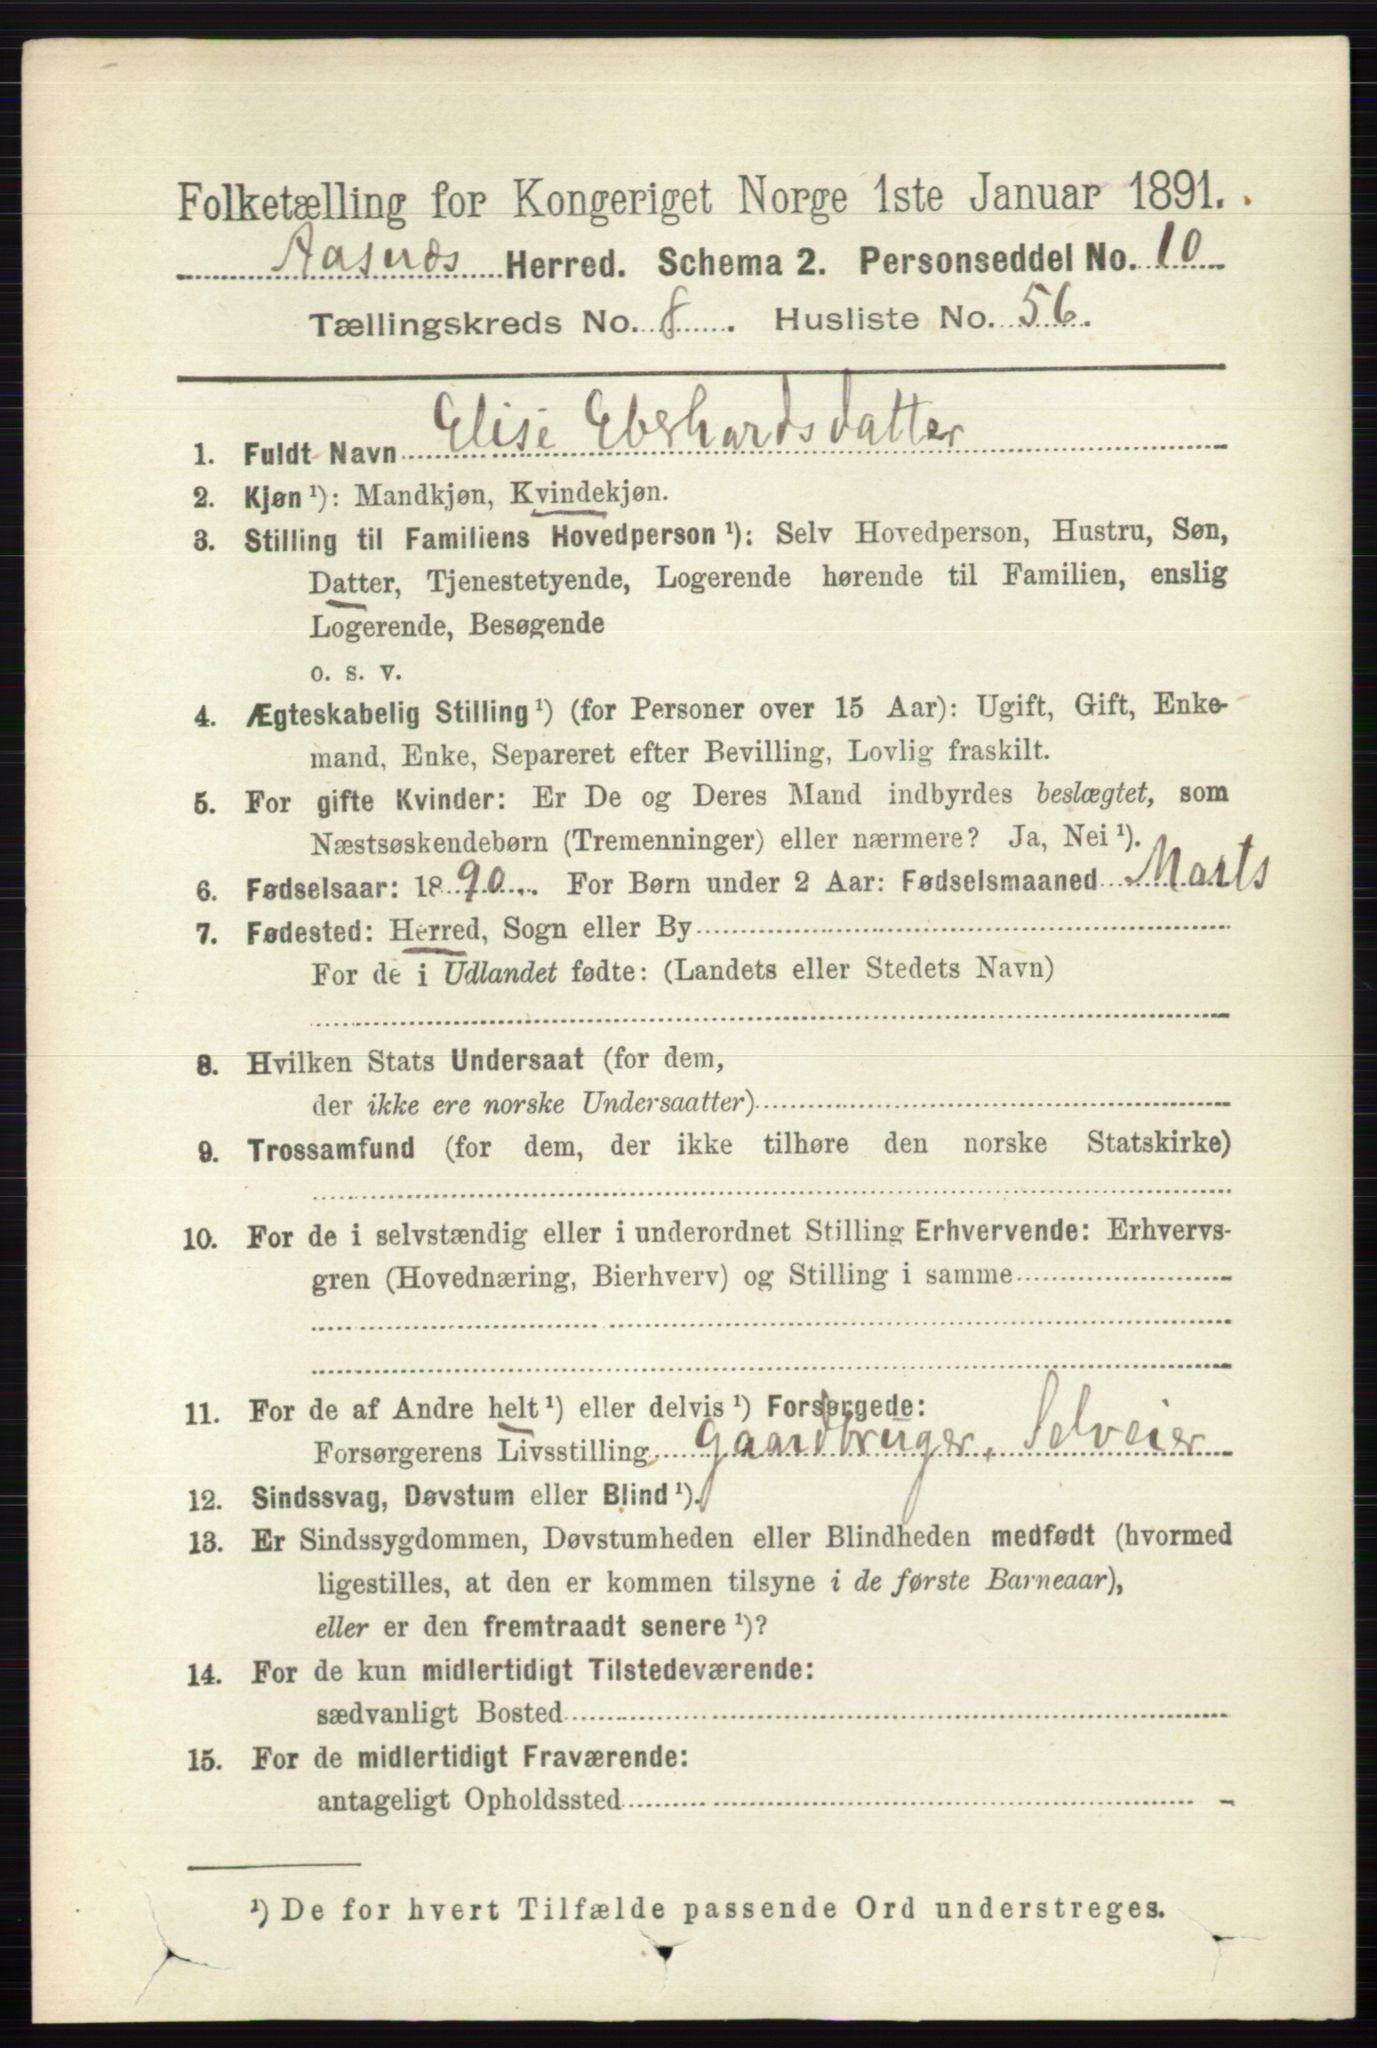 Folketælling for Kongeriget Norge 1ste Januar 1891.
Aasnæs Herred. Schema 2. Personseddel No. 10
Tællingskreds No. 8. Husliste No. 56.
1. Fuldt Navn Elise Eberhardsdatter
2. Kjøn ¹): Mandkjøn, Kvindekjøn.
3. Stilling til Familiens Hovedperson ¹): Selv Hovedperson, Hustru, Søn,
Datter, Tjenestetyende, Logerende hørende til Familien, enslig
Logerende, Besøgende
o. s. v.
4. Ægteskabelig Stilling ¹) (for Personer over 15 Aar): Ugift, Gift, Enke-
mand, Enke, Separeret efter Bevilling, Lovlig fraskilt.
5. For gifte Kvinder: Er De og Deres Mand indbyrdes beslægtet, som
Næstsøskendebørn (Tremenninger) eller nærmere? Ja, Nei ¹).
6. Fødselsaar: 1890. For Børn under 2 Aar: Fødselsmaaned Marts
7. Fødested: Herred, Sogn eller By
For de i Udlandet fødte: (Landets eller Stedets Navn)
8. Hvilken Stats Undersaat (for dem,
der ikke ere norske Undersaatter)
9. Trossamfund (for dem, der ikke tilhøre den norske Statskirke)
10. For de i selvstændig eller i underordnet Stilling Erhvervende: Erhvervs-
gren (Hovednæring, Bierhverv) og Stilling i samme
11. For de af Andre helt ¹) eller delvis ¹) Forsørgede:
Forsørgerens Livsstilling Gaardbruger, Selveier
12. Sindssvag, Døvstum eller Blind ¹).
13. Er Sindssygdommen, Døvstumheden eller Blindheden medfødt (hvormed
ligestilles, at den er kommen tilsyne i de første Barneaar),
eller er den fremtraadt senere ¹)?
14. For de kun midlertidigt Tilstedeværende:
sædvanligt Bosted
15. For de midlertidigt Fraværende:
antageligt Opholdssted
¹) De for hvert Tilfælde passende Ord understreges.